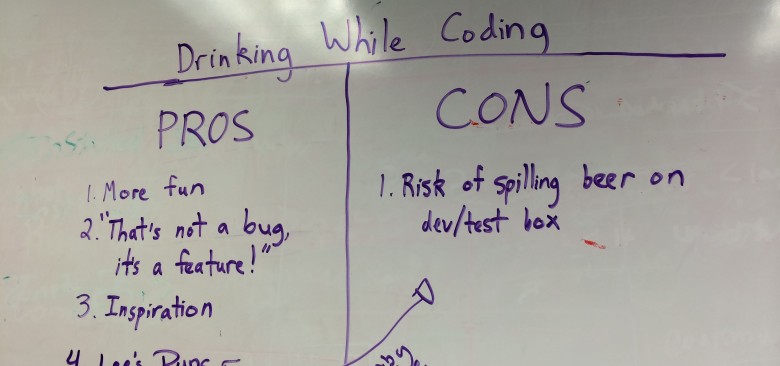 Drinking While Coding
PROS
1. More fun
2. "That's not a bug,
it's a feature!"
3. Inspiration
4 Lee's Puns
CONS
1. Risk of spilling beer on
dev/test box